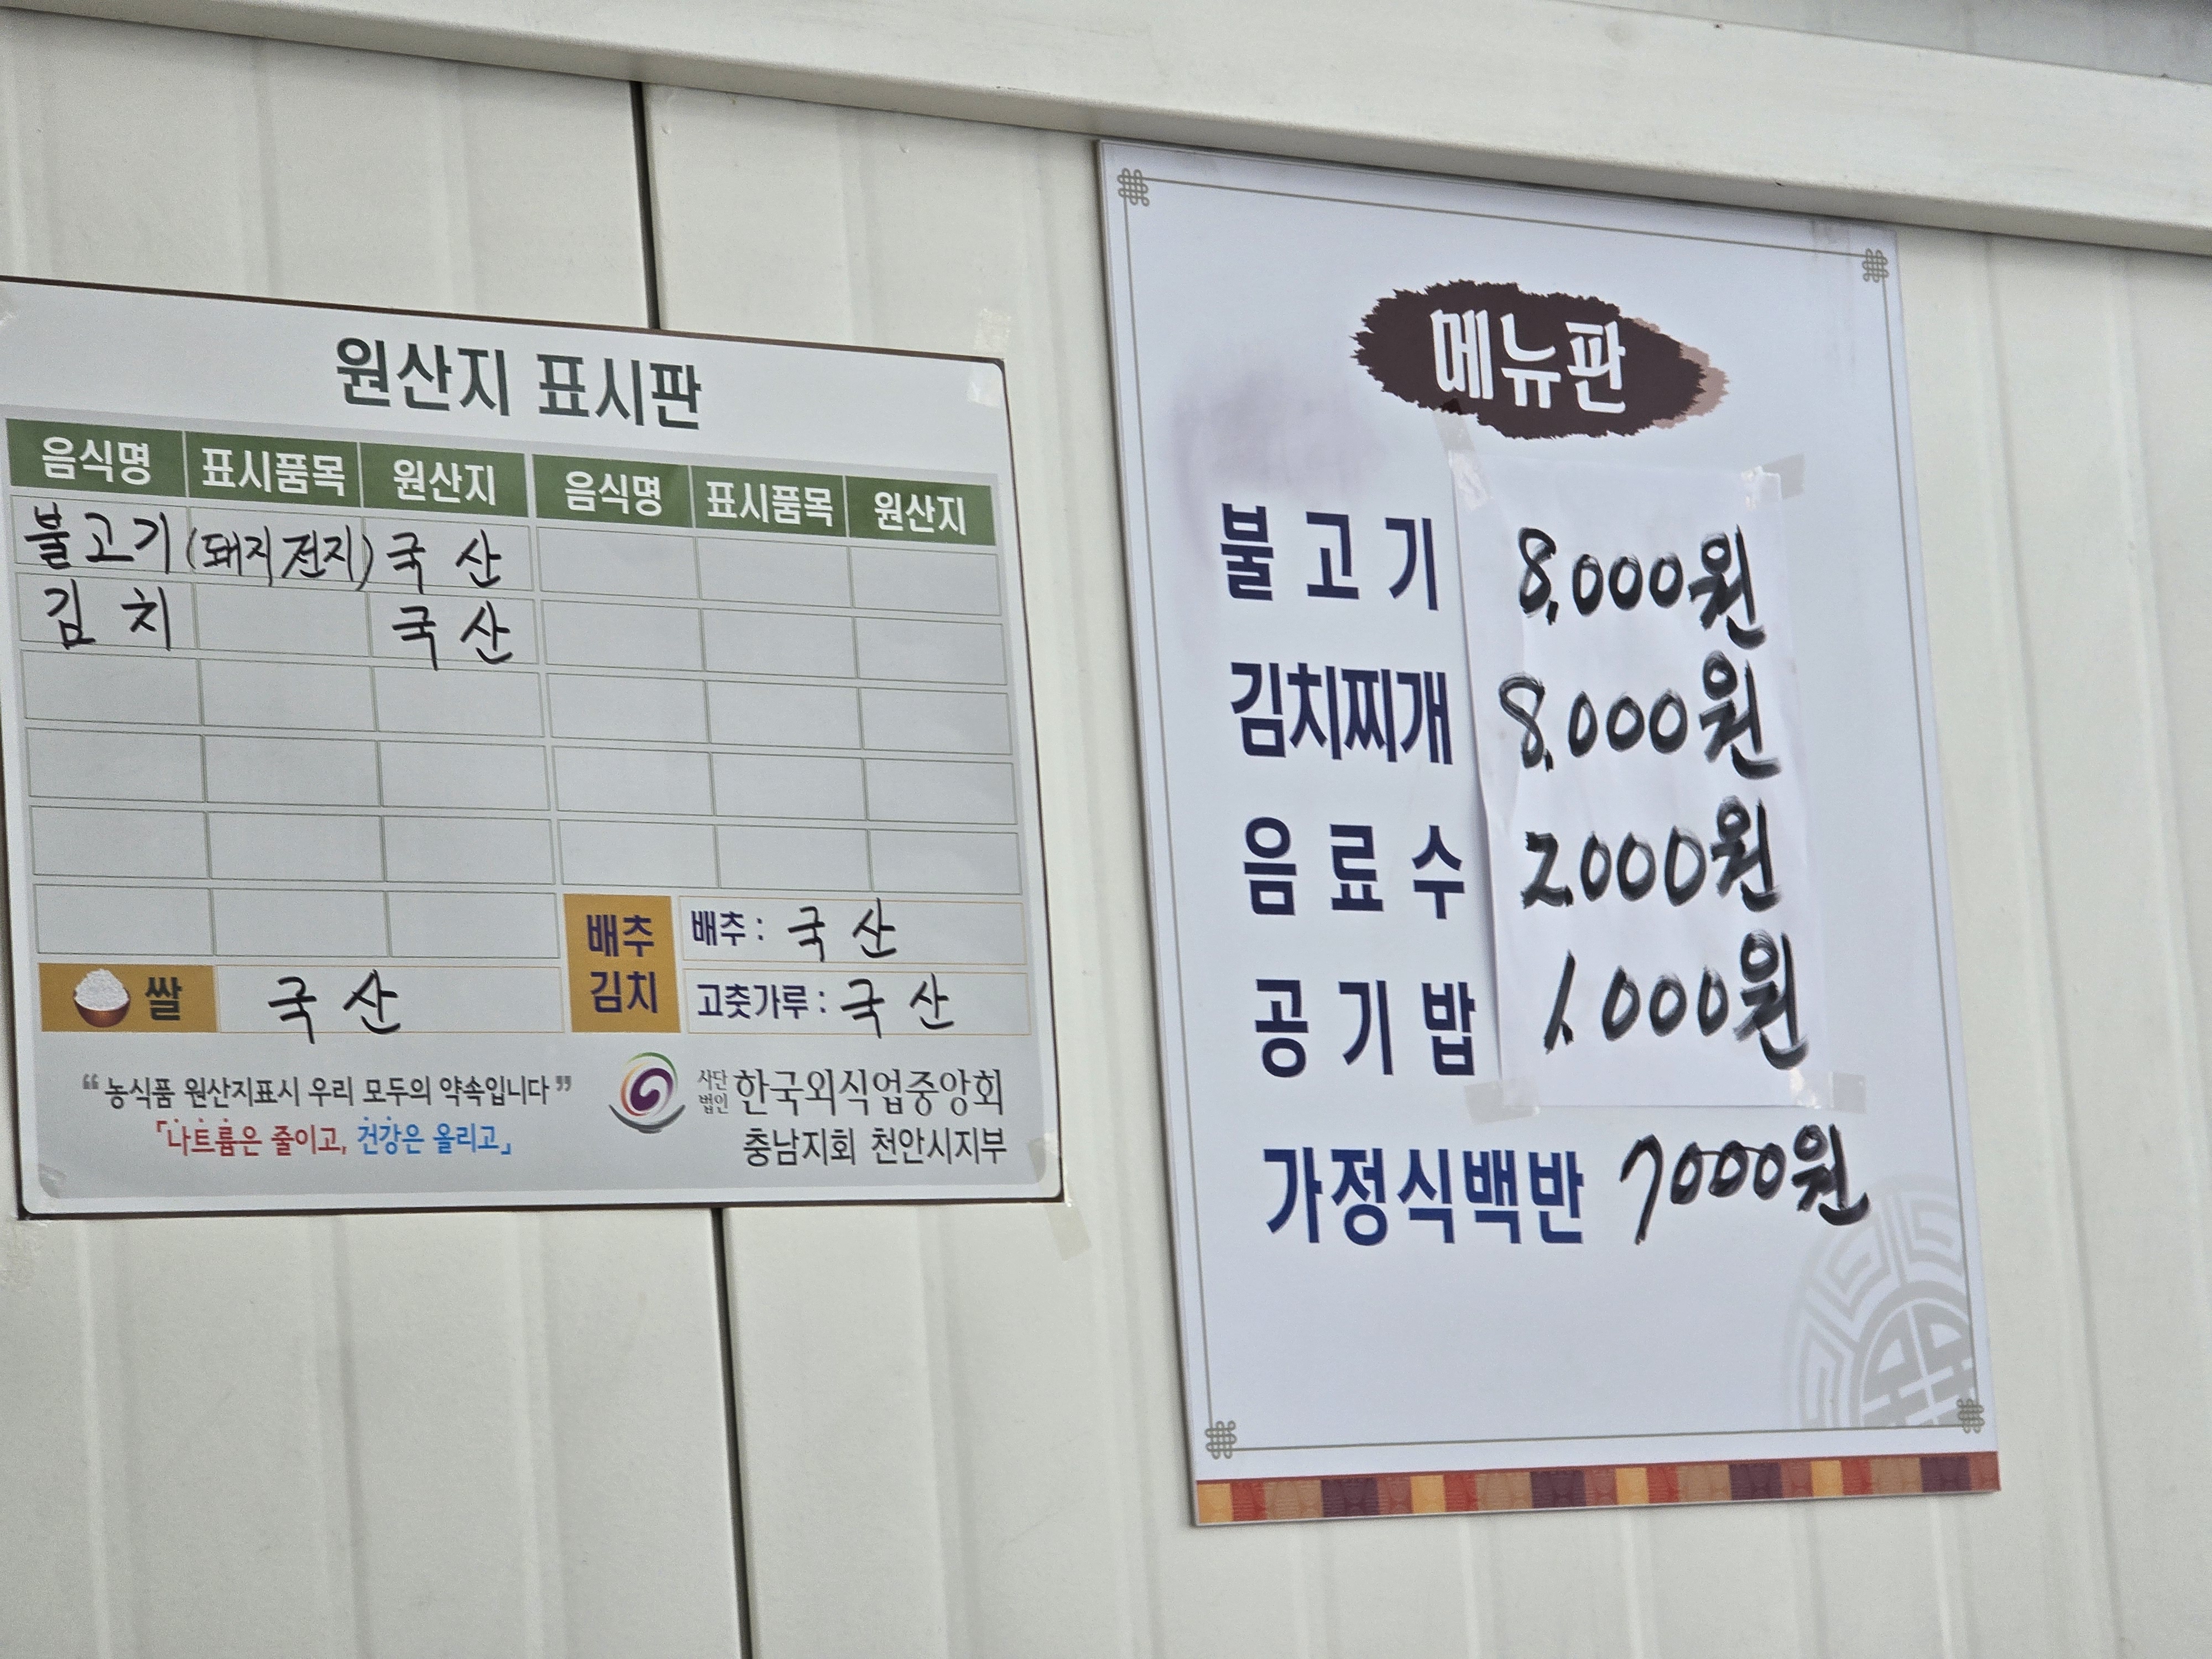 원산지 표시판
음식명 표시품목 원산지 음식명 표시품목 원산지
불고기 (돼지전지) 국산
김치 국산
쌀 국산
배추김치
배추 : 국산
고춧가루 : 국산
“농식품 원산지표시 우리 모두의 약속입니다”
「나트륨은 줄이고, 건강은 올리고」
사단법인 한국외식업중앙회
충남지회 천안시지부
메뉴판
불고기 8,000원
김치찌개 8,000원
음료수 2,000원
공기밥 1,000원
가정식백반 7000원